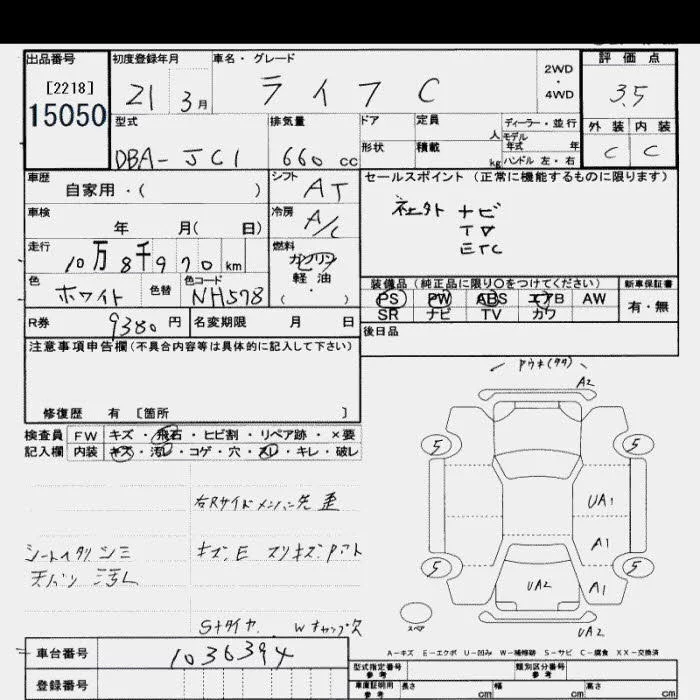 出品番号
[2218]
15050
初度登録年月
21 3月
車名・グレード
ライフ C
2WD
・
4WD
評価点
3.5
外装 内装
C C
型式
DBA-JC1
排気量
660 cc
ドア
形状
定員
人
積載
kg
ディーラー・並行
モデル
年式 年
ハンドル 左・右
車歴
自家用・( )
シフト
AT
車検
年 月( 日)
冷房
A/C
走行
10万8千970km
燃料
ガソリン
軽油
( ・ )
色
ホワイト
色替
色コード
NH578
R券
9380円
名変期限 月 日
セールスポイント(正常に機能するものに限ります)
社外 ナビ
TV
ETC
装備品(純正品に限り○をつけてください)
PS PW ABS エアB AW
SR ナビ TV カワ
新車保証書
有・無
後日品
注意事項申告欄(不具合内容等は具体的に記入して下さい)
修復歴 有 [箇所 ]
検査員
記入欄
FW キズ・飛石・ヒビ割・リペア跡・×要
内装 キズ・汚レ・コゲ・穴・スレ・キレ・破レ
右Rサイドメンバー先 歪
シートヘタリ シミ
キズ、E スリキズ、タッチ
Sタイヤ Wキャップ欠
A2
5 5
UA1
A1
5 5
UA2
A1
スペア
UA2
A-キズ E-エクボ U-凹み W-補修跡 S-サビ C-腐食 XX-交換済
車台番号
1036394
登録番号
型式指定番号
参考
類別区分番号
参考
車庫証明用
参考
長さ cm
幅 cm
高さ cm